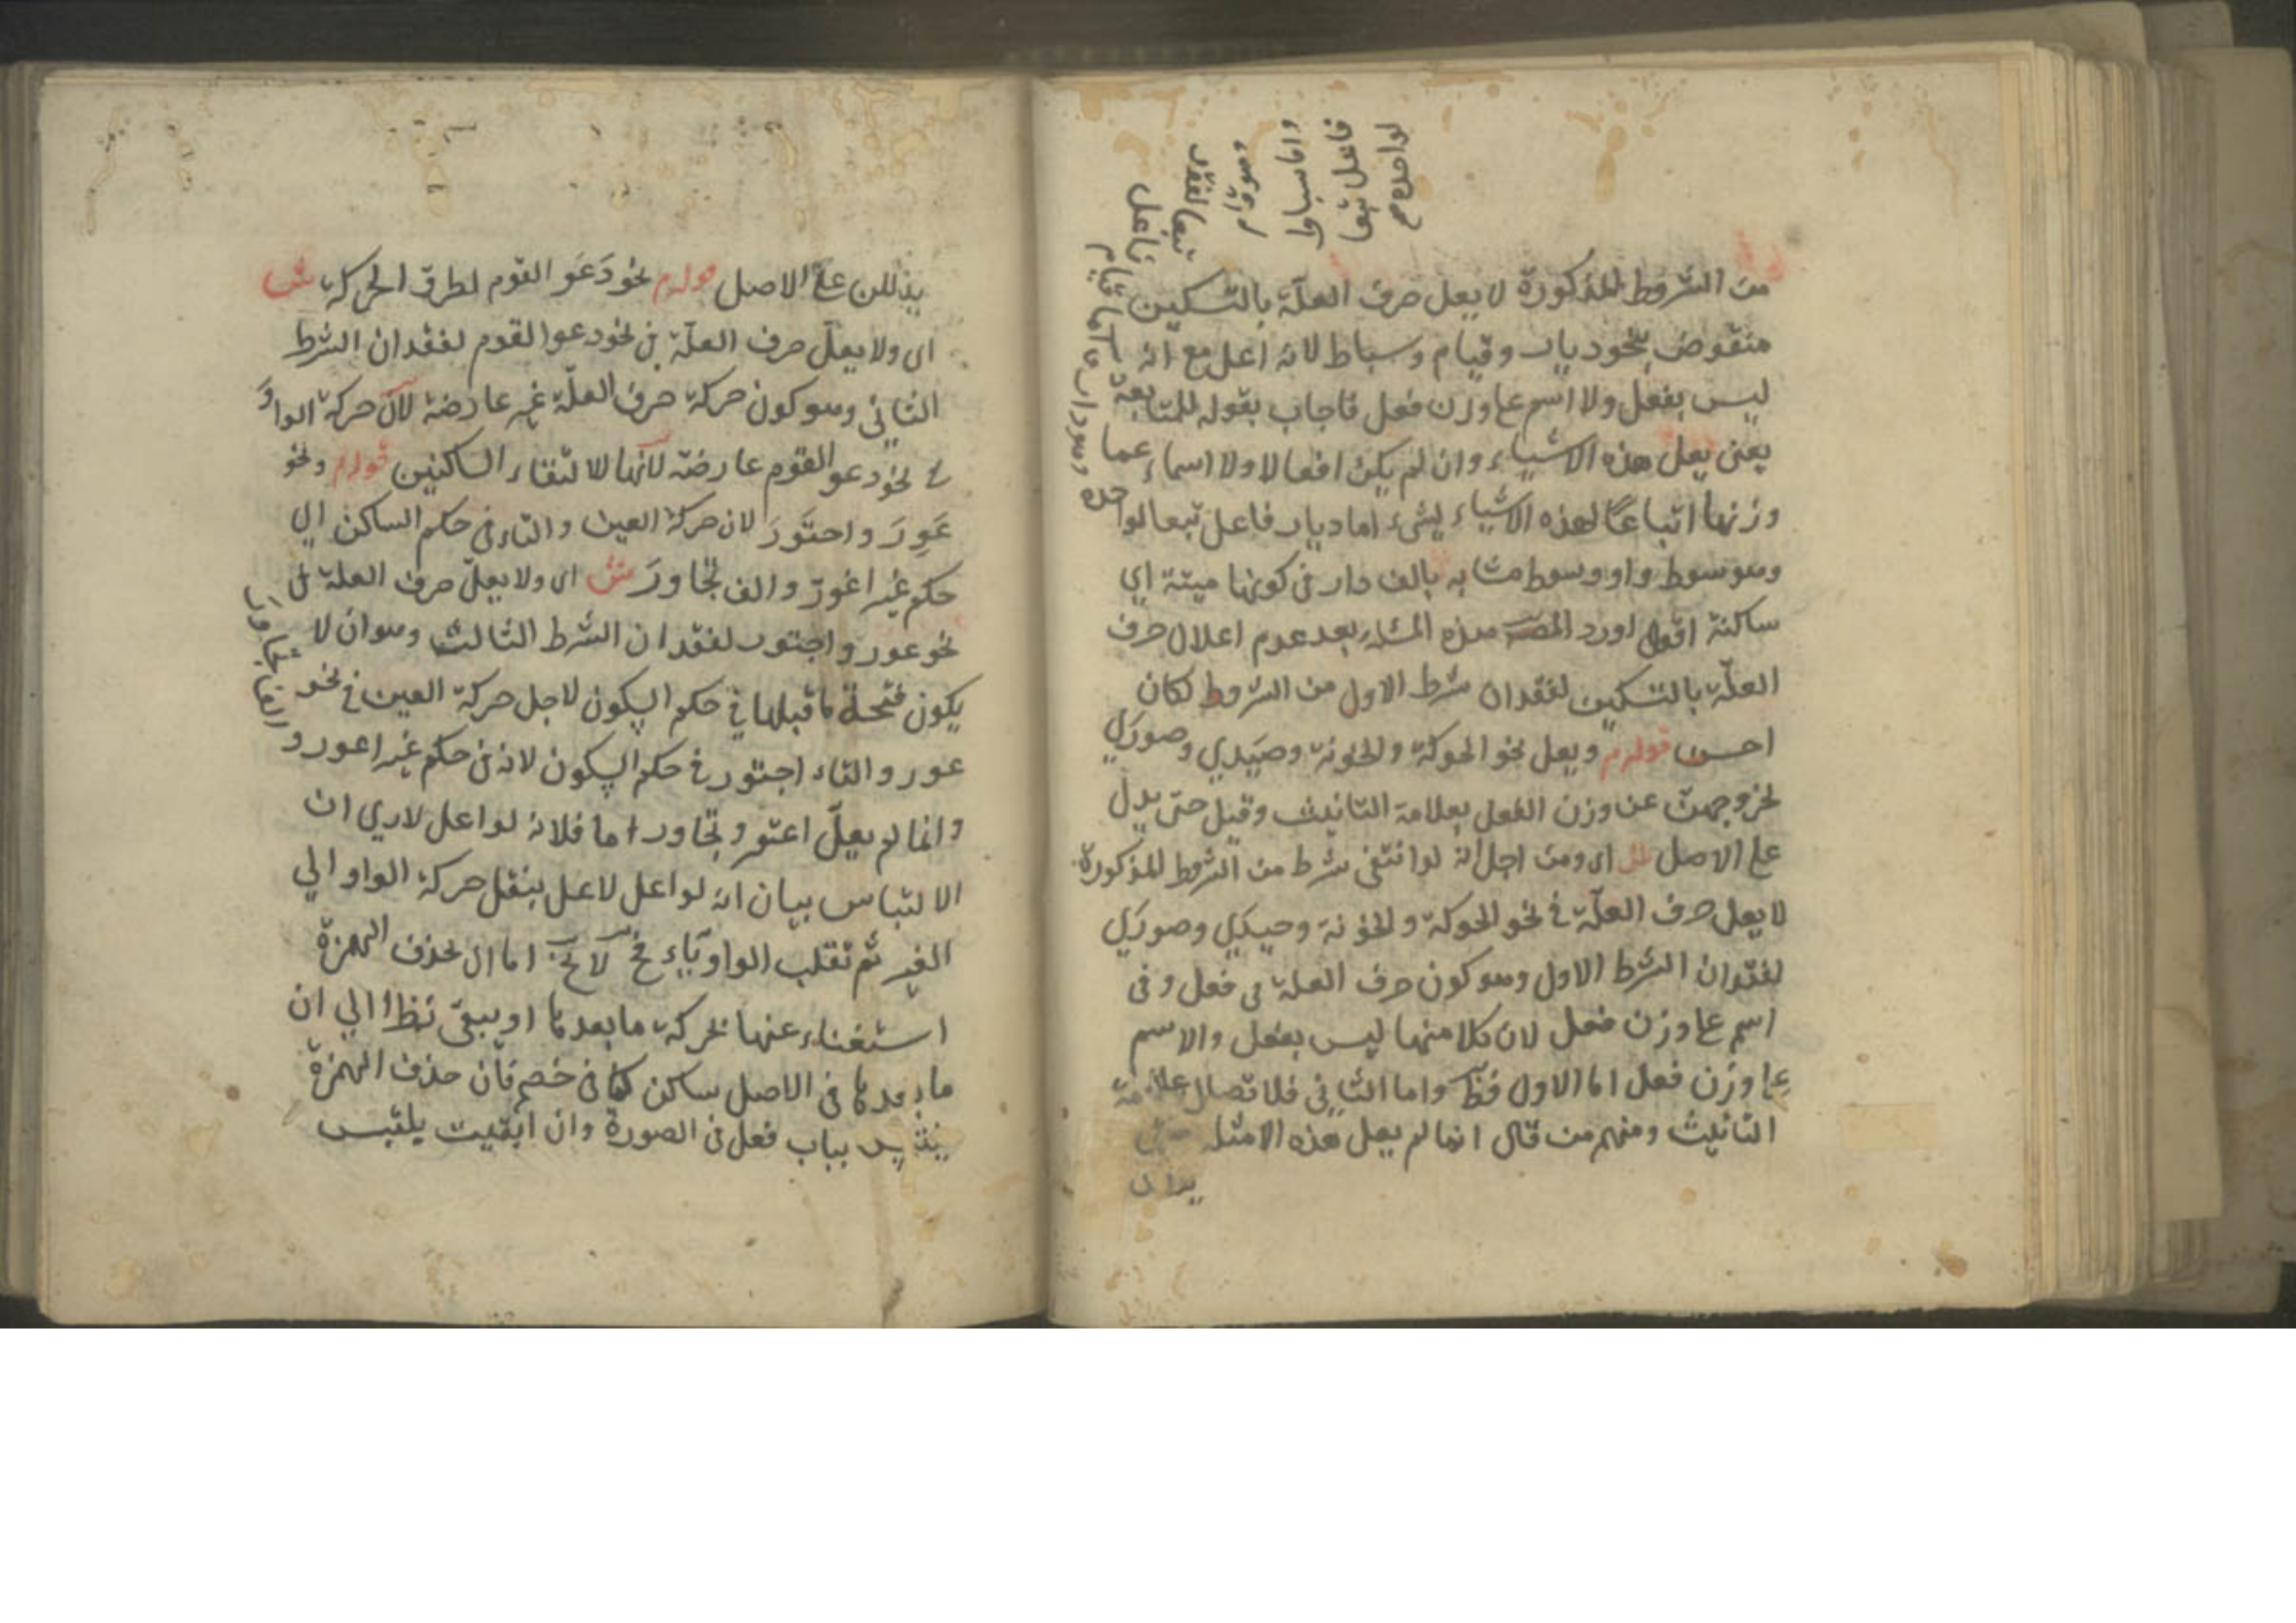 من الشروط المذكورة لا يعل حرف العلّة بالتسكين
منقوض بنحو ديار وقيام وسياط لانه اعل مع انه
ليس بفعل ولا اسم على وزن فعل فاجاب بقوله للمتابعة
يعنى يعل هذه الاشياء وان لم يكن افعالا ولا اسماء على
وزنها اتباعًا لهذه الاشياء لشيء اما ديار فاعل تبعا لواحده
وهو سوط واو وسوط مشابه بالف دار فى كونها ميتة اي
ساكنة اقول اورد المصـ هذه المسئلة بعد عدم اعلال حرف
العلّة بالتسكين لفقدان شرط الاول من الشروط لكان
احسن قوله م ويعل نحو الحوكة والخونة وصَيَدي وصورَي
لخروجهن عن وزن الفعل بعلامة التانيث وقيل حتى يدل
على الاصل ش اى ومن اجل انه لو انتفى شرط من الشروط المذكورة
لا يعل حرف العلّة فى نحو الحوكة والخونة وحيدَي وصورَي
لفقدان الشرط الاول وهو كون حرف العلة فى فعل وفى
اسم على وزن فعل لان كلا منها ليس بفعل والاسم
على وزن فعل اما الاول فظ واما الثانى فلاتصال علامة
التانيث ومنهم من قال انما لم يعل هذه الامثلة حتى
يدلل
وهو دار
واما قيام
فاعل
تبعا لفعله
وهو قام
واما سياط
فاعل تبعا
لواحده م
يدللن على الاصل قوله م نحو دَعَو القوم لطرو الحركة ش
اى ولا يعلّ حرف العلّة فى نحو دعوا القوم لفقدان الشرط
الثانى وهو كون حركة حرف العلّة غير عارضة لان حركة الواو
فى نحو دعو القوم عارضة لانها لالتقاء الساكنين قوله م ونحو
عَوِرَ واجتَوَرَ لان حركة العين والتاء فى حكم الساكن اي
حكم عين اعْوَرّ والف تجاورَ ش اى ولا يعلّ حرف العلة فى
نحو عور واجتور لفقدان الشرط الثالث وهو ان لا
يكون فتحة ما قبلها فى حكم السكون لاجل حركة العين فى نحو
عور والتاء اجتور فى حكم السكون لانه فى حكم عين اعور و
الف تجاور
وانما لم يعلّ اعور وتجاور اما فلانه لو اعل لادي الى
الالتباس بيان انه لو اعل لاعل بنقل حركة الواو الي
الغير ثم تقلب الواو ... اما ان يحذف الهمزة
استغناء عنها بحركة ما بعدها او يبقى نظرا الي ان
ما بعدها فى الاصل ساكن كما فى خصم فان حذف الهمزة
يلتبس بباب فعل فى الصورة وان ابقيت يلتبس